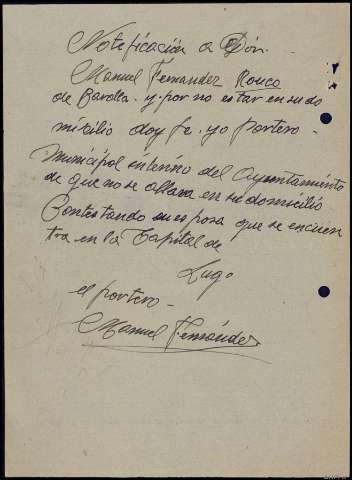 Notificación a Dón.
Manuel Fernandez Rouco
de Baralla. y. por no estar en su do
misilio doy fe. yo portero.
municipal interino del Ayuntamiento
de que no se allava en su domicilio
Contestando su esposa que se encuen
tra en la Capital de
Lugo
el portero-
Manuel Fernández